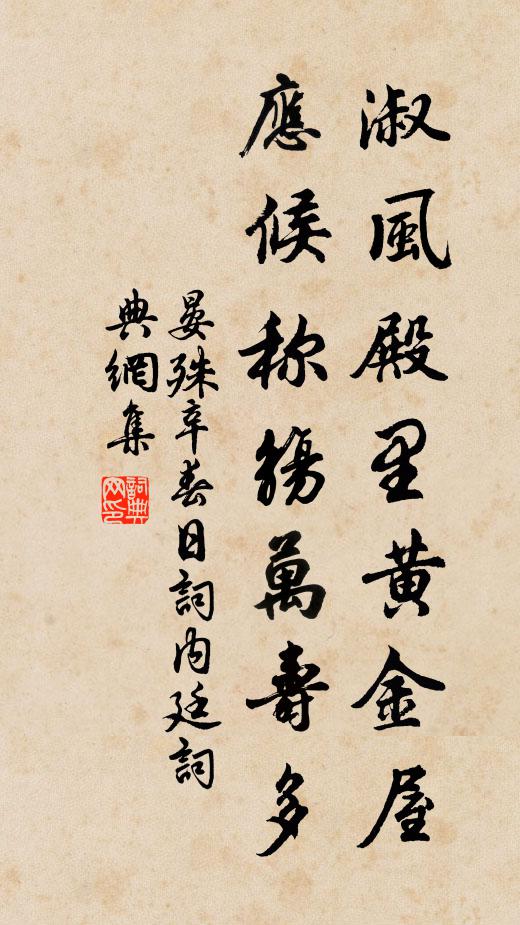 淑風殿里黃金屋
應候称觴萬壽多
晏殊辛春日詞内廷詞
典網集
詞典網印